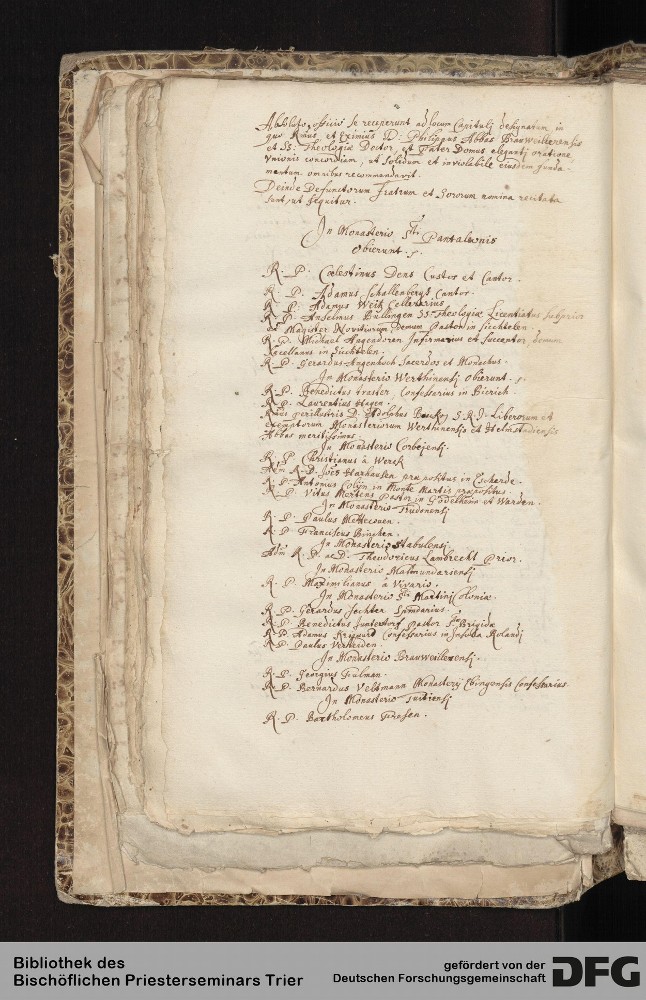 Absoluto officio se receperunt ad locum Capituli designatum in
quo Rmus et Eximius D: Philippus Abbas Brauweilerensis
et SS: Theologiæ Doctor, et Pater Domus eleganti oratione
Unionis concordiam, ut solidum et inviolabile eiusdem funda-
mentum omnibus recommendavit.
Deinde Defunctorum Fratrum et Sororum nomina recitata
sunt, ut sequitur.
In Monasterio Sti Pantaleonis
obierunt.
R. P. Cœlestinus Dens Custos et Cantor.
R. P. Adamus Schallenberg Cantor.
R. P. Adamus Weis Cellerarius
R. P. Anselmus Büllingen SS. Theologiæ Licentiatus Subprior
et Magister Novitiorum demum Pastor in Süchtelen.
R. P. Michael Angendoren Infirmarius et Succentor, demum
Sacellanus in Süchtelen.
R. P. Gerardus Angenhoch Sacerdos et Monachus.
In Monasterio Werthinensi obierunt.
R. P. Benedictus Confessarius in
R. P. Laurentius Hagen.
Rmus perillustris D. Adolphus S. R. J. Liberorum et
exemptorum Monasteriorum Werthinensis et Helmstadiensis
Abbas meritissimus.
In Monasterio Corbejensi.
R. P. Christianus à Werck
Adm R. D. Joes Haxhausen præpositus in
R. P. Antonius in Monte Martis præpositus
R. P. Vitus Mertens Pastor in Godelheim et Warden.
In Monasterio Trudonensi
R. P. Paulus Mettecoven.
R. P. Franciscus
In Monasterio Stabulensi
Adm R. D. ac D. Theodoricus Lambrecht Prior.
In Monasterio Malmundariensi
R. P. Maximilianus à Vivario.
In Monasterio Sti Martini Coloniæ.
R. P. Gerardus Fochter
R. P. Benedictus Juntersdorf Pastor Stæ Brigidæ
R. P. Adamus Confessarius in Insula Rolandi
R. P. Paulus
In Monasterio Brauweilerensi.
R. P. Georgius
R. P. Bernardus Veltmann Monasterij Confessarius
In Monasterio Tuitiensi
R. P. Bartholomeus
Bibliothek des
Bischöflichen Priesterseminars Trier
gefördert von der
Deutschen Forschungsgemeinschaft
DFG